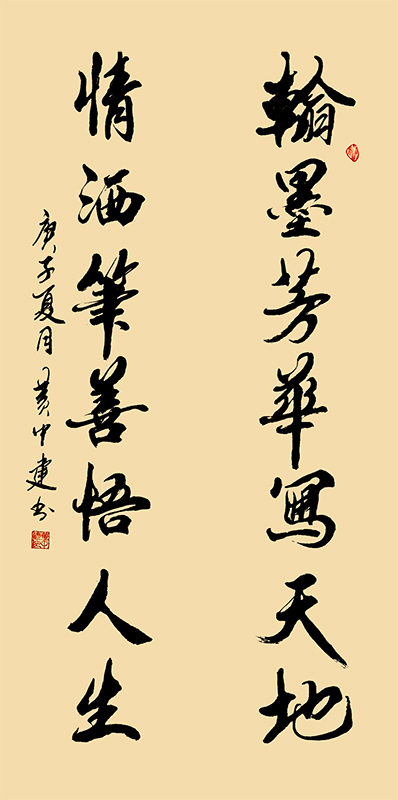 翰墨芳華寫天地
情洒筆善悟人生
庚子夏月黄中建书